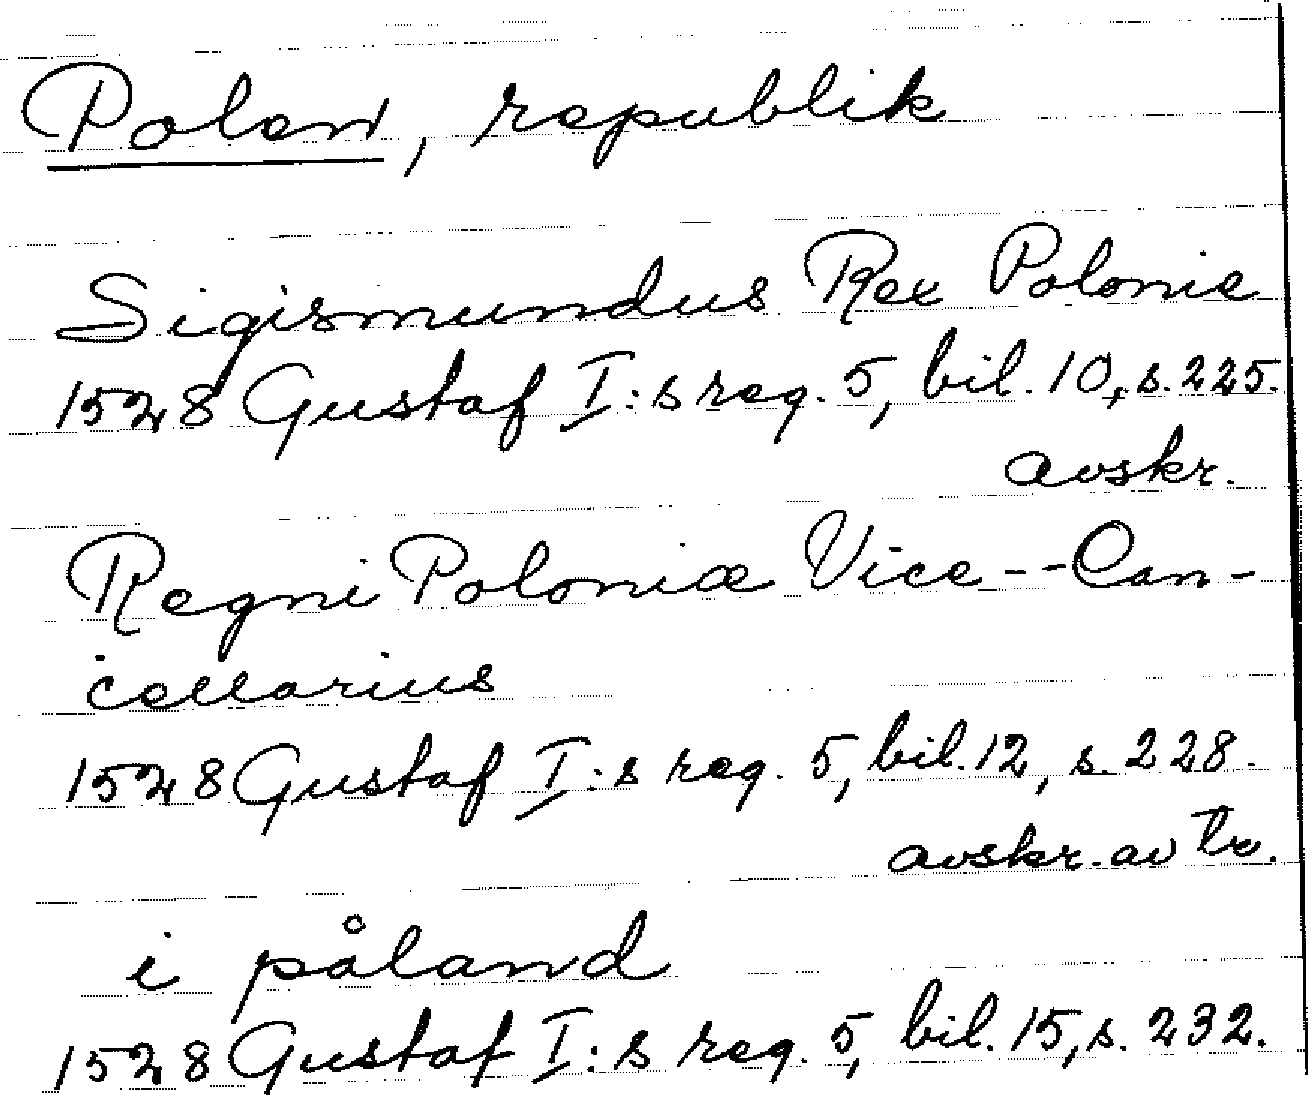 Polen, republik
Sigismundus Rex Polonie
1528 Gustaf I:s reg. 5, bil. 10, s. 225.
avskr.
Regni Poloniæ Vice--Can-
cellarius
1528 Gustaf I:s reg. 5, bil. 12, s. 228.
avskr. av tr.
i påland
1528 Gustaf I:s reg. 5, bil. 15, s. 232.